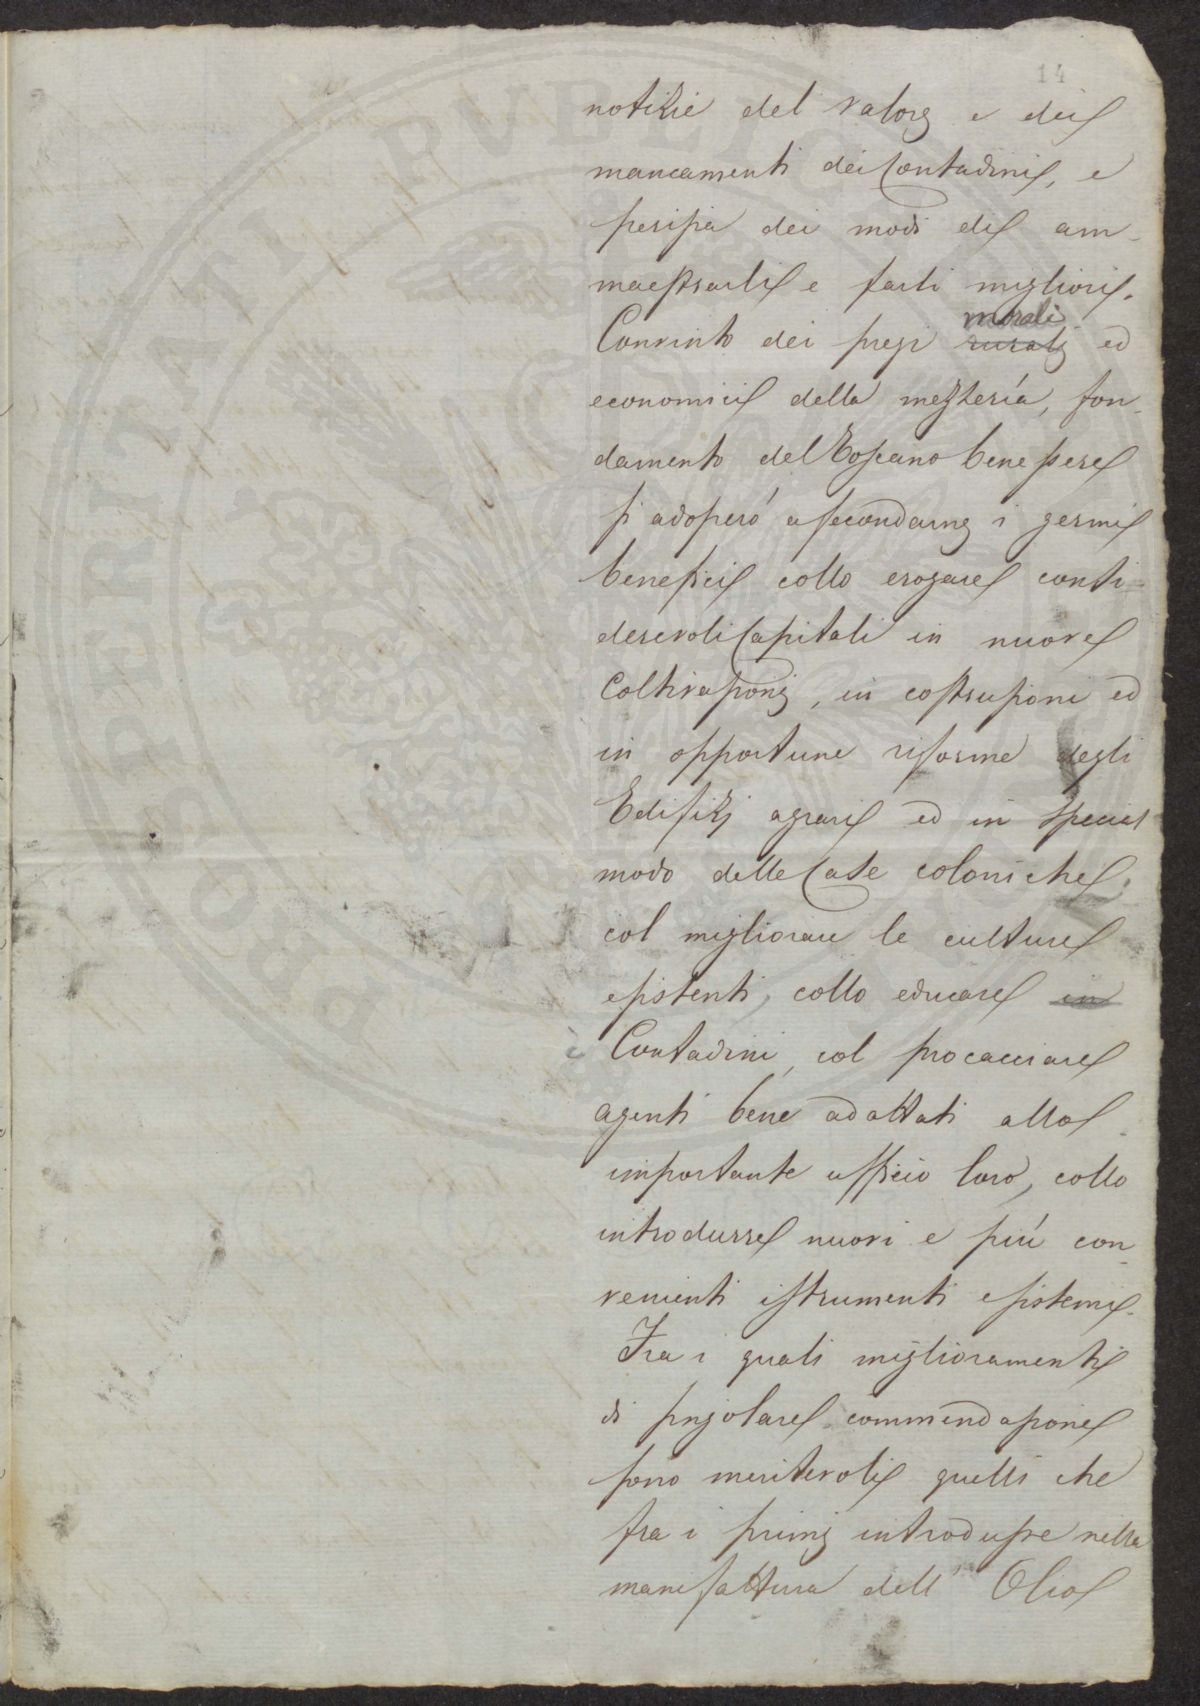 14
notizie del valore e dei
mancamenti dei Contadini, e
perizia dei modi di am-
maestrarli e farli migliori.
Convinto dei pregi rurali morali ed
economici della mezzería, fon-
damento del Toscano benessere
si adoperó a secondarne i germi
benefici collo erogare consi-
derevoli Capitali in nuove
Coltivazioni, in costruzioni ed
in opportune riforme degli
Edifizj agrarj ed in special
modo delle Case coloniche,
col migliorare le culture
esistenti, collo educare in
i Contadini, col procacciare
agenti bene adattati allo
importante ufficio loro, collo
introdurre nuovi e piú con-
venienti istrumenti e sistemi.
Fra i quali miglioramenti
di singolare commendazione
sono meritevoli quelli che
fra i primi introdusse nella
manifattura dell' Olio
COOPERIATI PVBLIC